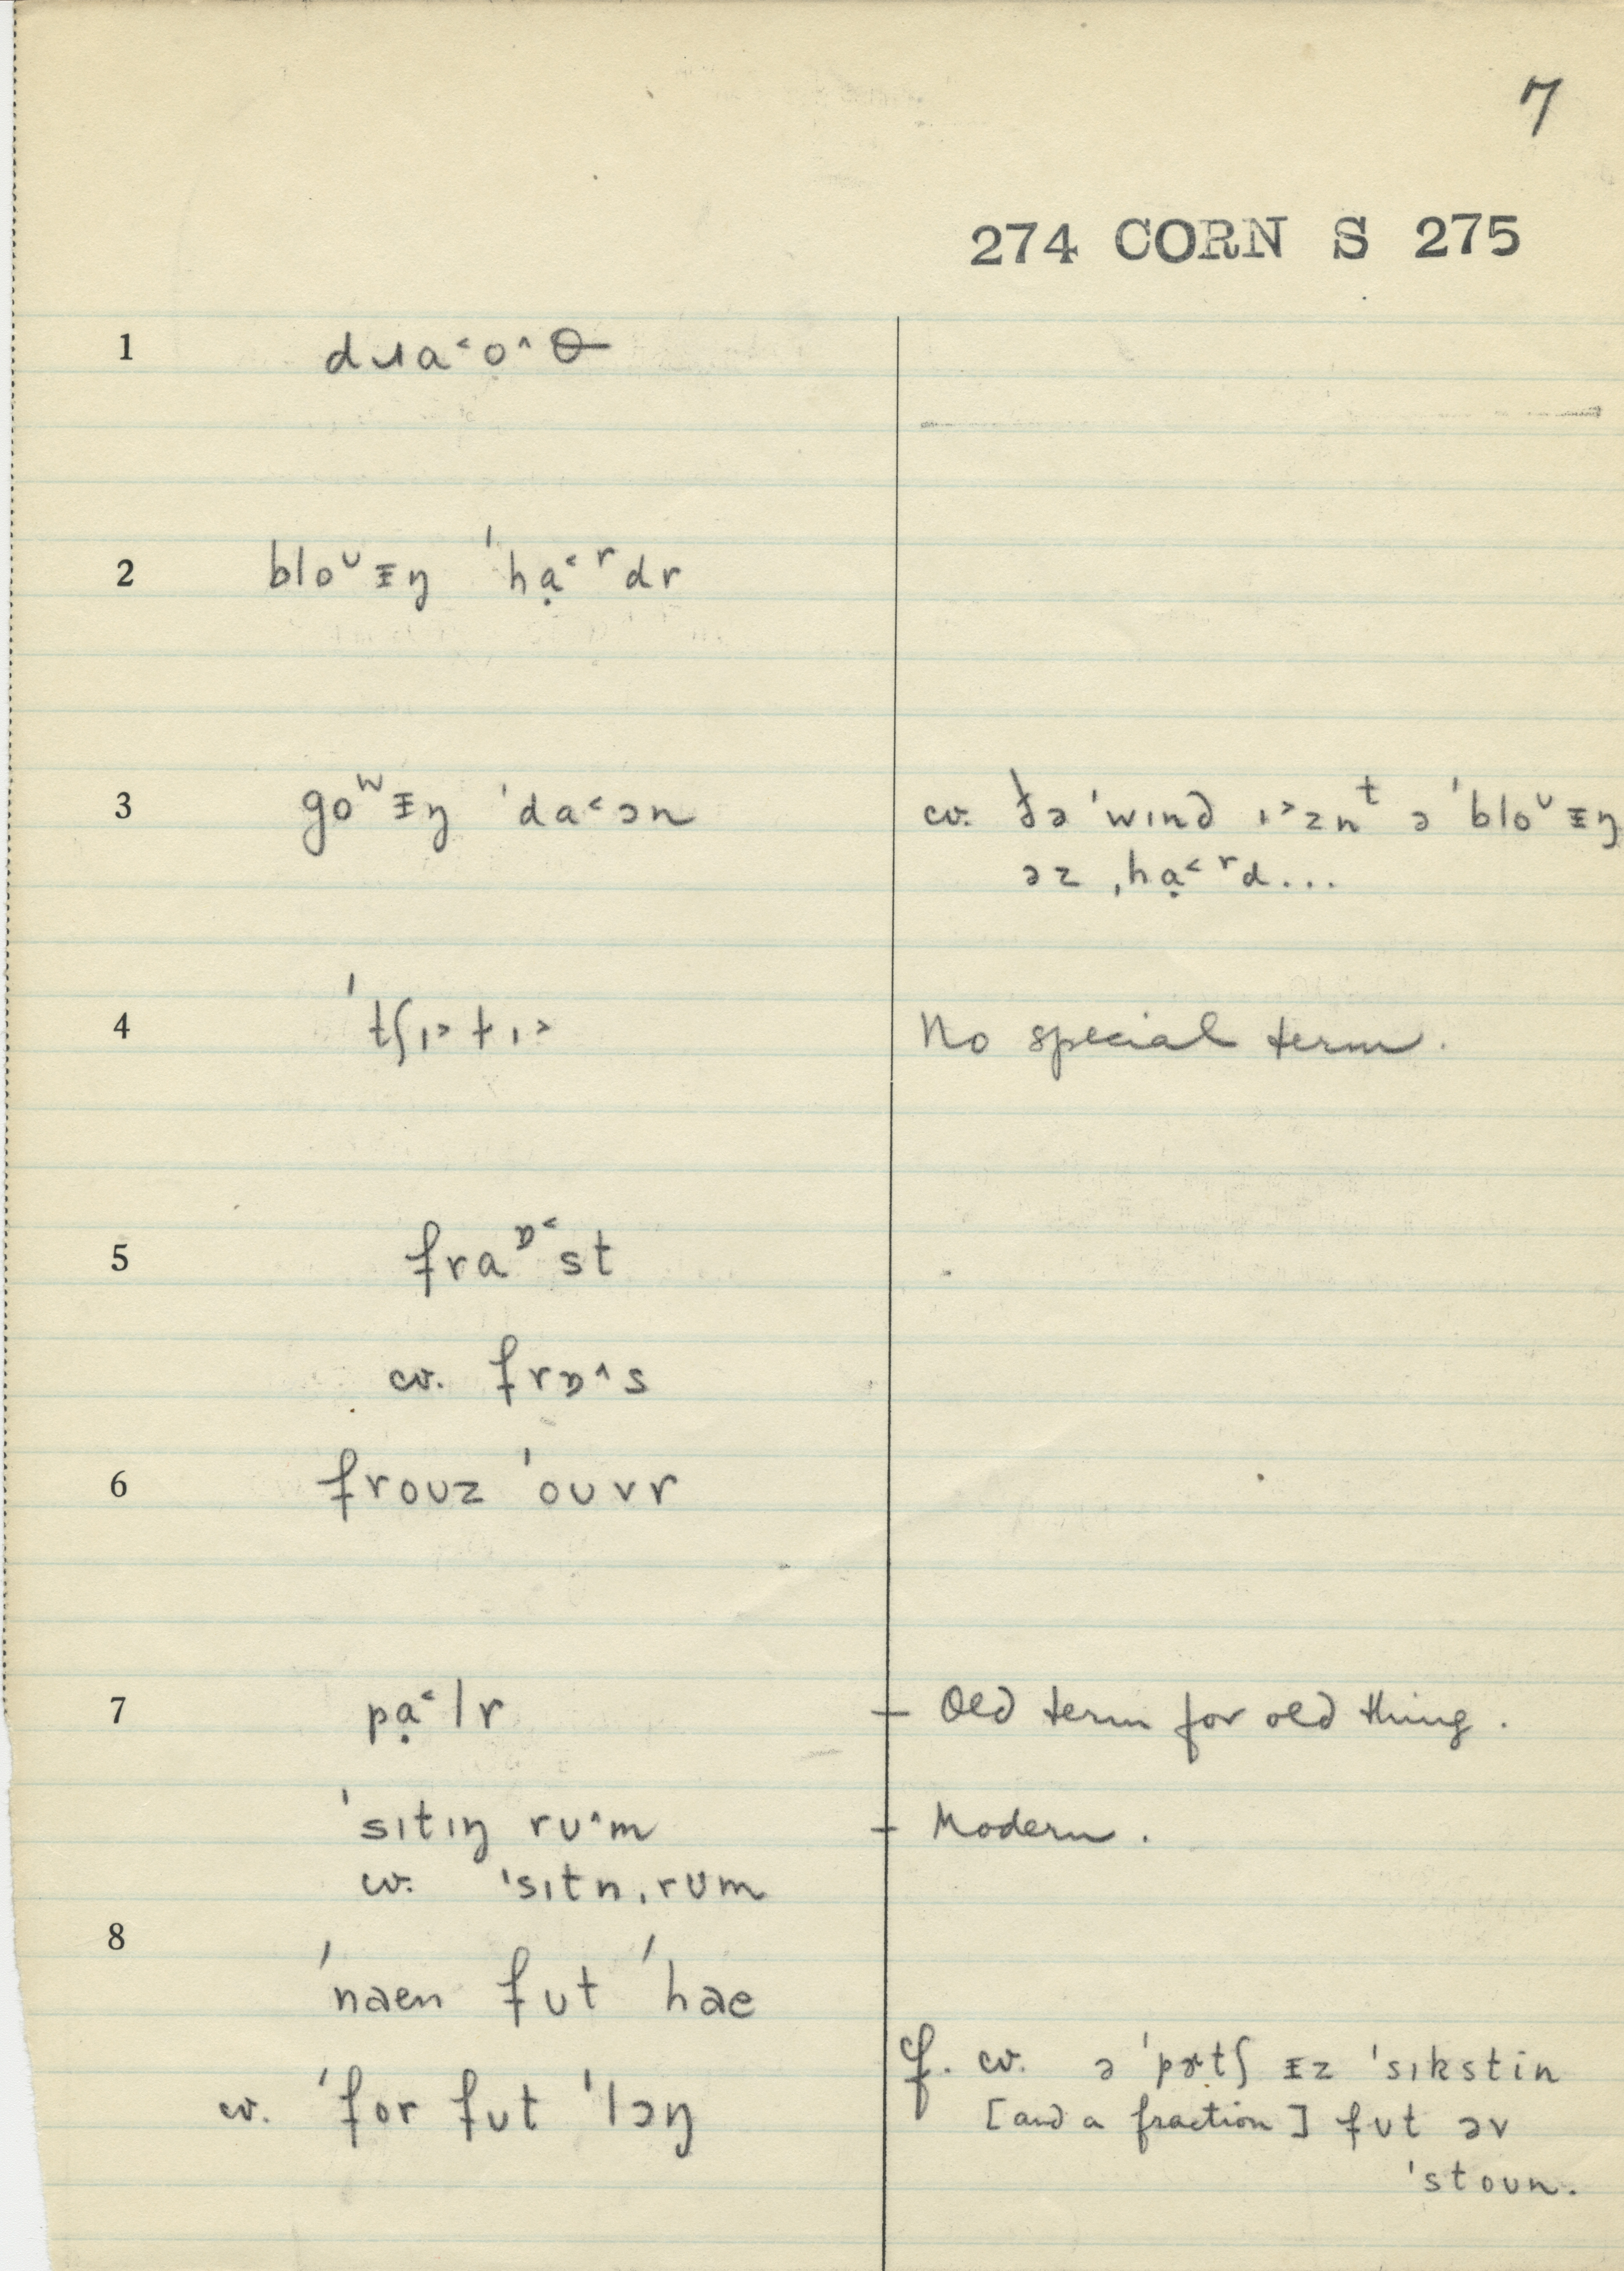 7
274 CORN S 275
1 dɹa˂ọ˄θ
2 bloᶷᵻŋ ˈhạ˂ʳdr
3 goʷᵻŋ ˈda˂ən
cv. ðə ˈwɪnd ɪ˃znᵗ ə ˈbloᶷᵻŋ
əz ˌhạ˂ʳd...
4 ˈtʃɪ˃t̬ɪ˃
No special term.
5 fraᶛ˂st
cv. frɒ˄s
6 froʊz ˈoʊvr
7 pạ˂lr
- Old term for old thing.
ˈsɪtɪŋ rʊ˄m
- Modern.
cv. ˈsɪtn̩ˌrʊm
8
ˈnaen fʊt ˈhae
cv. ˈfor fʊt ˈlɔŋ
cf. cv. ə ˈpɝtʃ ᵻz ˈsɪkstin
[and a fraction] fʊt əv
ˈstoʊn.